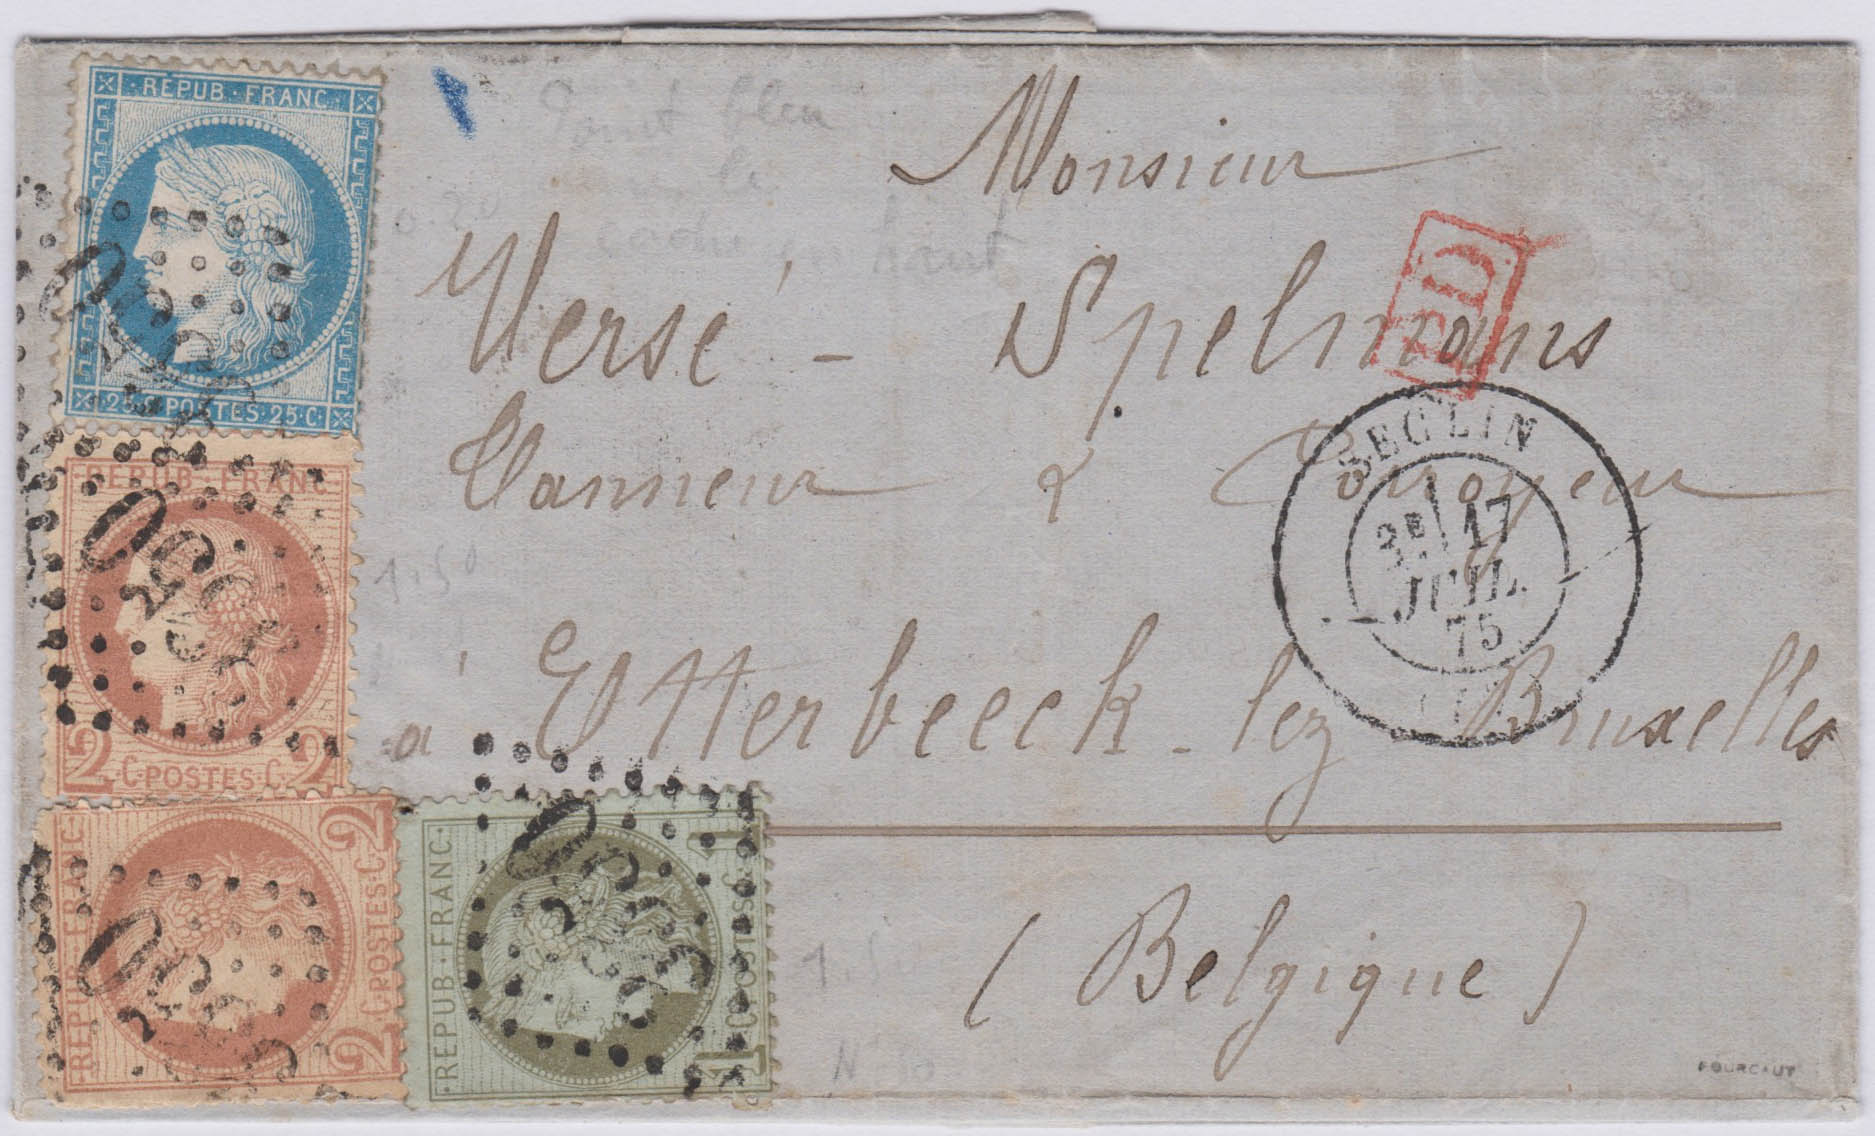 ·REPUB·FRANC·
25·C·POSTES·25·C·
REPUB·FRANC
2 C·POSTES·C· 2
·REPUB·FRANC·
2 C·POSTES·C· 2
·REPUB·FRANC·
1 C·POSTES·C 1
Point bleu
cachet en haut
0.20
1.50
Monsieur
Versé - Spelmans
Tanneur & Corroyeur
à Etterbeeck-lez Bruxelles
(Belgique)
PD
SECLIN
3E 17
JUIL.
75
FOURCAUT